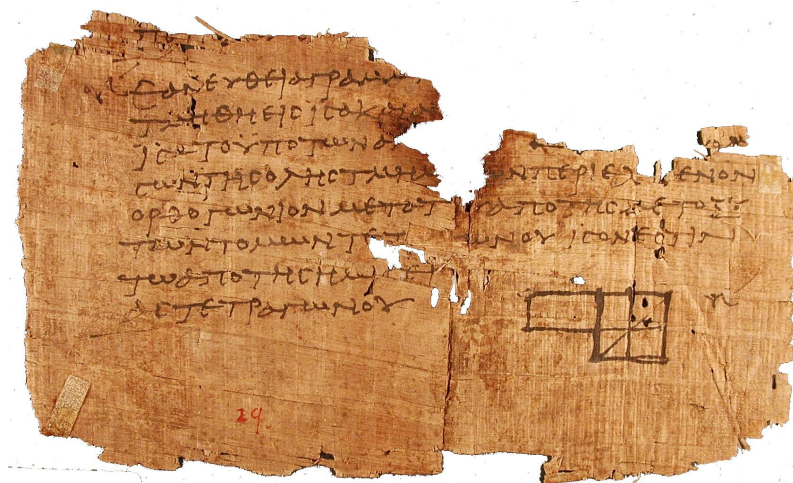 ΕΑΝ ΕΥΘΕΙΑ ΓΡΑΜΜ
ΤΜΗΘΗ ΕΙϹ ΙϹΑ ΚΑΙ ΑΝ
ΙϹΑ ΤΟ ΥΠΟ ΤΩΝ Α
ϹΩΝ ΤΗϹ ΟΛΗϹ ΤΜΗΜ ΩΝ ΠΕΡΙΕΧ ΕΝΟΝ
ΟΡΘΟΓΩΝΙΟΝ ΜΕΤΑ ΤΟΥ ΑΠΟ ΤΗϹ ΜΕΤΟΞΥ
ΤΩΝ ΤΟΜΩΝ ΤΕΤ ΩΝΟΥ ΙϹΟΝ ΕϹΤΙΝ
ΤΩ ΑΠΟ ΤΗϹ ΗΜΙϹΕΙ
ΑϹ ΤΕΤΡΑΓΩΝΟΥ
29